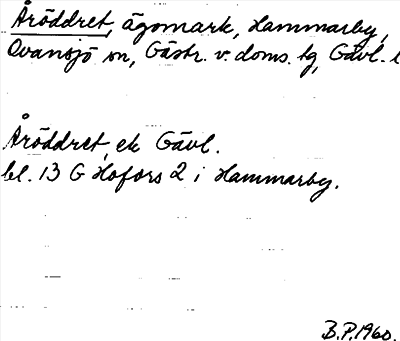 Åröddret, ägomark, Hammarby,
Ovansjö sn, Gästr. v. doms. tg, Gävl. l
Åröddret, ek Gävl.
bl. 13 G Hofors 2 i Hammarby.
B.P. 1960.